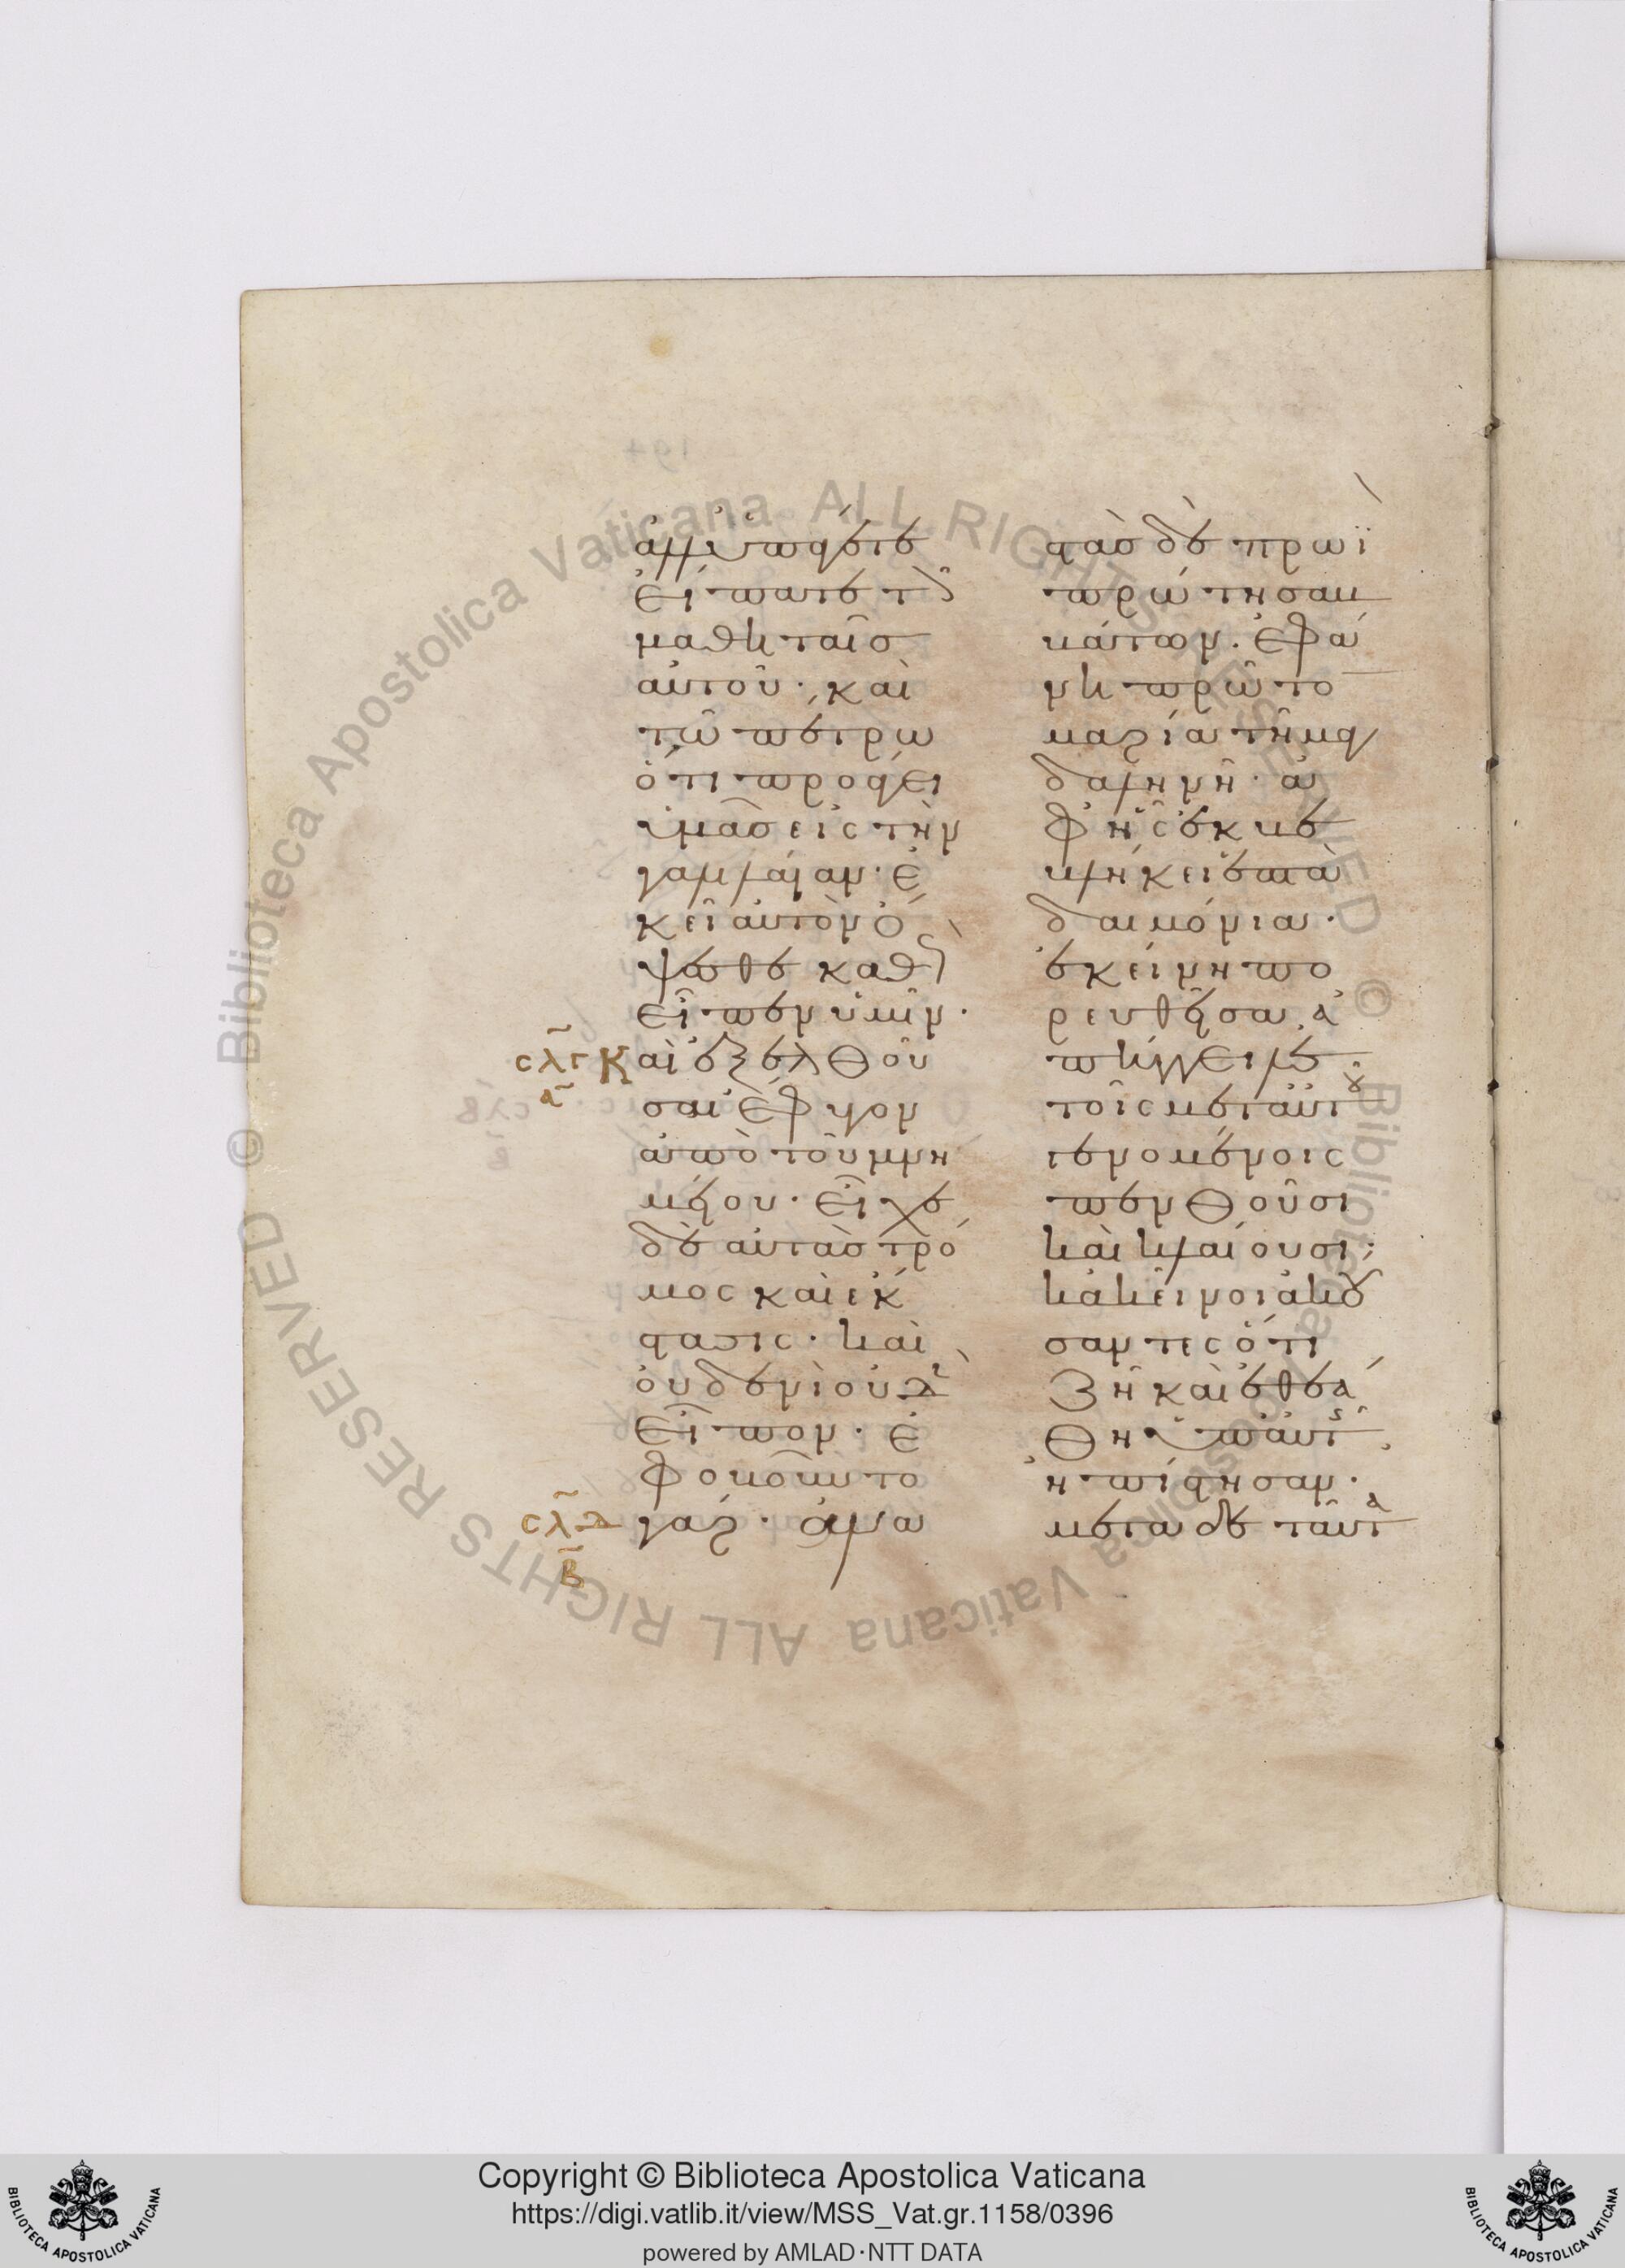 ἀλλ' ὑπάγετε
εἴπατε τοῖς
μαθηταῖς
αὐτοῦ· καὶ
τῶ πέτρω
ὅτι προάγει
ὑμᾶς εἰς τὴν
γαλιλαίαν· ἐ
κεῖ αὐτὸν ὄ
ψεσθε καθὼς
εἶπεν ὑμῖν·
σλγ Καὶ ἐξελθοῦ
α
σαι ἔφυγον
ἀπὸ τοῦ μνη
μείου· εἶχε
δὲ αὐτὰς τρό
μος καὶ ἔκ
στασις· καὶ
οὐδενὶ οὐδὲν
εἶπον· ἐ
φοβοῦντο
σλδ γάρ· ἀνα
β
στὰς δὲ πρωῒ
πρώτη σαβ
βάτου· ἐφά
νη πρῶτον
μαρία τῆ μαγ
δαληνῆ· ἀ
φ' ἧς ἐκβε
βλήκει ἑπτὰ
δαιμόνια·
ἐκείνη πο
ρευθεῖσα ἀ
πήγγειλε
τοῖς μετ' αὐτοῦ
γενομένοις
πενθοῦσι
καὶ κλαίουσι·
κἀκεῖνοι ἀκού
σαντες ὅτι
ζῆ καὶ ἐθεά
θη ὑπ' αὐτῆς
ἠπίστησαν·
μετὰ δὲ ταῦτα
© Biblioteca Apostolica Vaticana ALL RIGHTS RESERVED © Biblioteca Apostolica Vaticana ALL RIGHTS RESERVED
Copyright © Biblioteca Apostolica Vaticana
https://digi.vatlib.it/view/MSS_Vat.gr.1158/0396
powered by AMLAD·NTT DATA
BIBLIOTECA APOSTOLICA VATICANA
BIBLIOTECA APOSTOLICA VATICANA